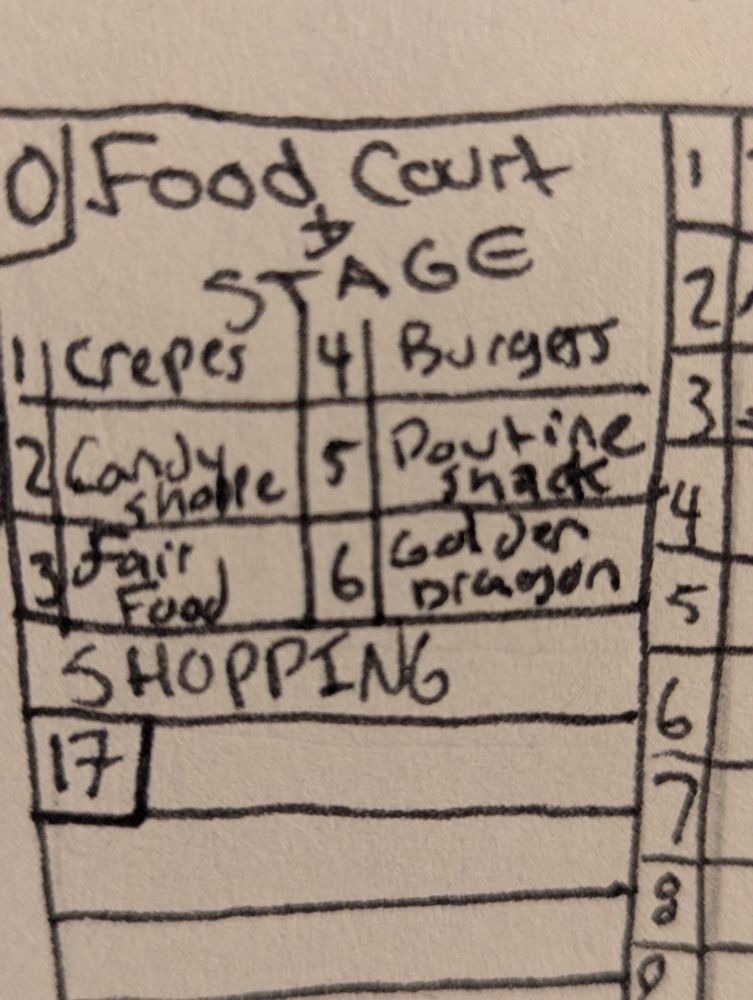 0 Food Court
&
STAGE
1 Crepes 4 Burgers
2 Candy Shoppe 5 Poutine Shack
3 Fair Food 6 Golden Dragon
SHOPPING
17
1
2
3
4
5
6
7
8
9